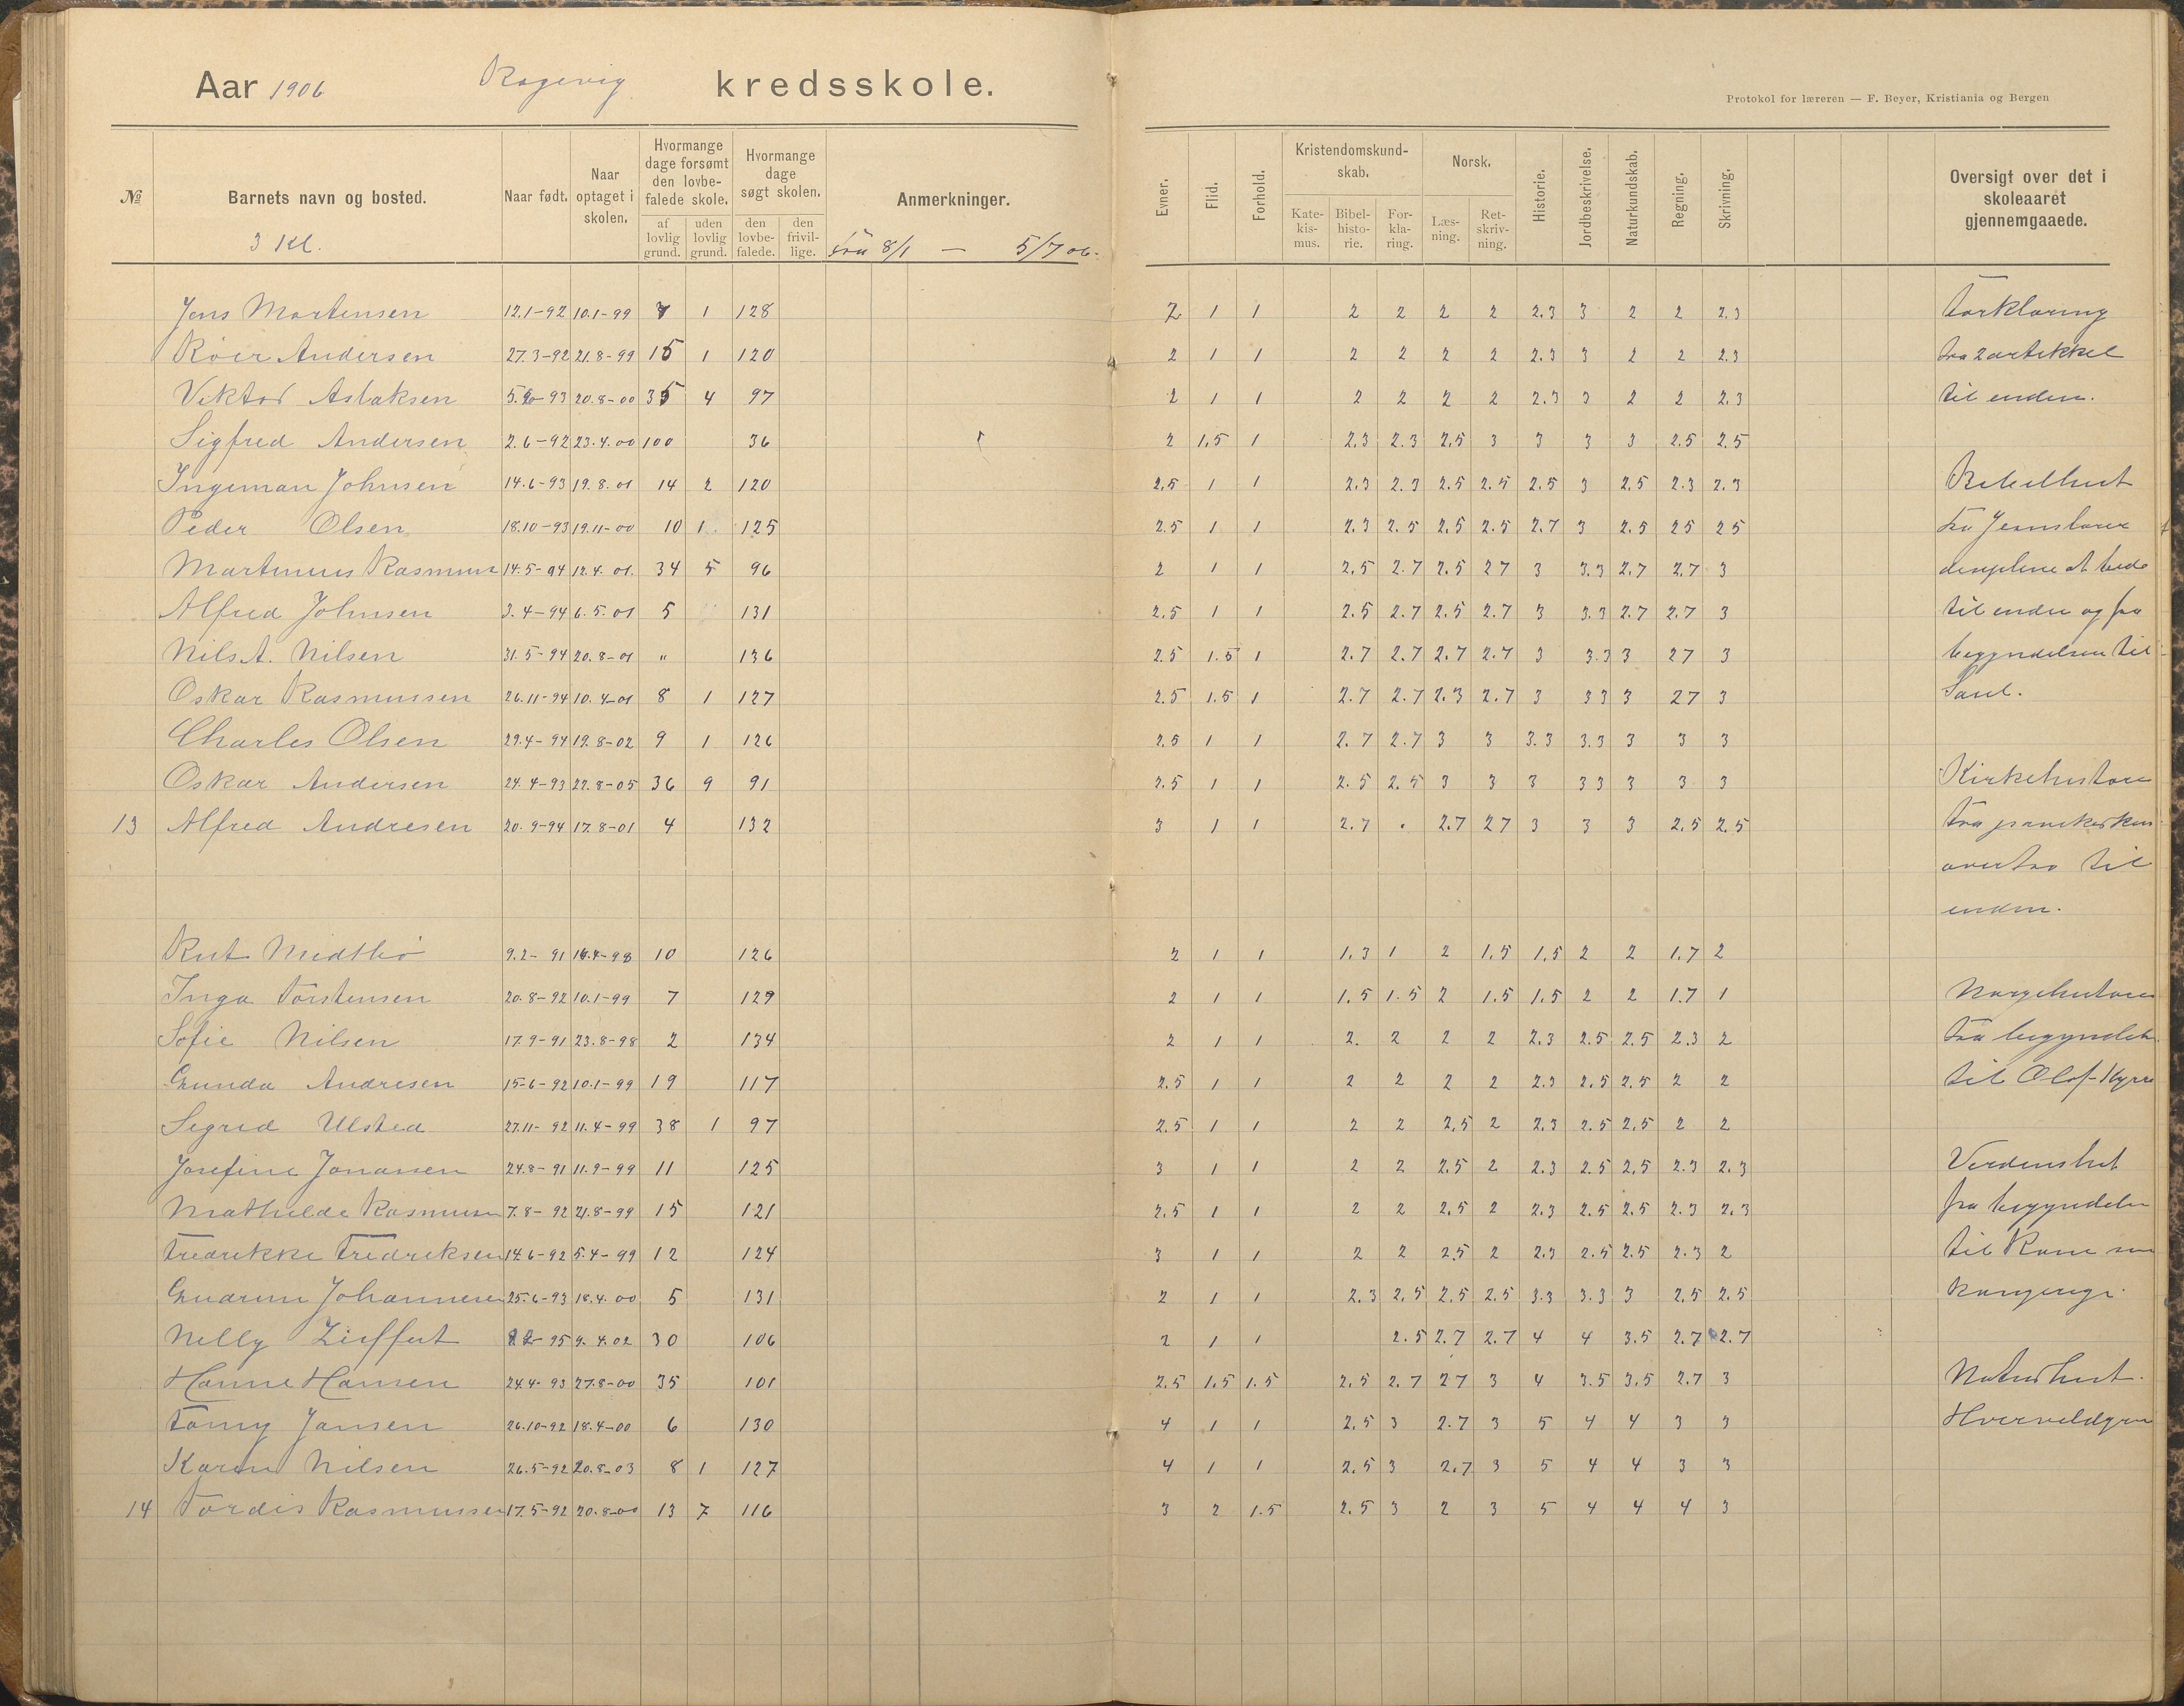 Aar 1906 Ragevig kredsskole.
Protokol for læreren — F. Beyer, Kristiania og Bergen
№ Barnets navn og bosted. Naar født. Naar optaget i skolen. Hvormange dage forsømt den lovbefalede skole. af lovlig grund. uden lovlig grund. Hvormange dage søgt skolen. den lovbefalede. den frivillige. Anmerkninger. Evner. Flid. Forhold. Kristendomskundskab. Katekismus. Bibelhistorie. Forklaring. Norsk. Læsning. Retskrivning. Historie. Jordbeskrivelse. Naturkundskab. Regning. Skrivning. Oversigt over det i skoleaaret gjennemgaaede.
3 Kl. fra 8/1 — 5/7 06.
Jens Mortensen 12.1-92 10.1-99 1 128 2 1 1 2 2 2 2 2.3 3 2 2 2.3 Forklaring
Roier Andersen 27.3-92 21.8-99 15 1 120 2 1 1 2 2 2 2 2.3 3 2 2 2.3 fra 2 artikkel
Viktor Aslaksen 93 20.8-00 35 4 97 2 1 1 2 2 2 2 2.3 3 2 2 2.3 til enden.
Sigfred Andersen 2.6-92 23.4.00 100 36 2 1,5 1 2.3 2.3 2,5 3 3 3 3 2.5 2.5
Ingeman Johnsen 14.6-93 19.8.01 14 2 120 2,5 1 1 2.3 2.3 2.5 2.5 2.5 3 2,5 2.3 2.3 Bibelhist
Peder Olsen 18.10-93 19.11-00 10 1 125 2.5 1 1 2.3 2.5 2,5 2.5 2.7 3 2.5 25 25 fra
Martinius Rasmuss 14.5-94 12.4.01. 34 5 96 2 1 1 2,5 2.7 2,5 27 3 3.3 2,7 2,7 3 disiplene at bede
Alfred Johnsen 3.4-94 6.5.01 5 131 2,5 1 1 2.5 2.7 2.5 2.7 3 3.3 2.7 2.7 3 til enden og fra
Nils A. Nilsen 31.5-94 20.8-01 " 136 2.5 1.5 1 2.7 2.7 2.7 2.7 3 3.3 3 27 3 begyndelsen til
Oskar Rasmussen 26.11-94 10.4-01 8 1 127 2.5 1.5 1 2.7 2.7 2.3 2.7 3 33 3 27 3 Saul.
Charles Olsen 29.4-94 19.8-02 9 1 126 2,5 1 1 2.7 2.7 3 3 3.3 3.3 3 3 3
Oskar Andersen 24.4-93 22.8-05 36 9 91 2.5 1 1 2.5 2.5 3 3 3 33 3 3 3 Kirkehistorie
13 Alfred Andresen 20.9-94 17.8-01 4 132 3 1 1 2.7 . 2.7 27 3 3 3 2,5 2,5 fra
til
enden.
Rut Midtbö 9.2-91 98 10 126 2 1 1 1,3 1 2 1,5 1,5 2 2 1,7 2
Inga Torstensen 20.8-92 10.1-99 7 129 2 1 1 1.5 1.5 2 1.5 1,5 2 2 1.7 1 Norgehistorie
Sofie Nilsen 17.9-91 23.8-98 2 134 2 1 1 2. 2 2 2 2.3 2.5 2.5 2.3 2 fra begyndels
Gunda Andresen 15-6-92 10.1-99 19 117 2.5 1 1 2 2 2 2 2.3 2.5 2.5 2 2 til Olaf-Kyrre
Sigrid Ulsted 27.11-92 11.4-99 38 1 97 2.5 1 1 2 2 2,5 2 2.3 2.5 2,5 2 2
Josefine Jonassen 24.8-91 11.9-99 11 125 3 1 1 2 2 2.5 2 2.3 2.5 2,5 2.3 2.3 Verdenshist
Mathilde Rasmussen 7.8-92 21.8-99 15 121 2,5 1 1 2 2 2,5 2 2.3 2.5 2.5 2.3 2.3 fra begyndelse
Fredrikke Fredriksen 14.6-92 5.4-99 12 124 3 1 1 2 2 25 2 2.3 2.5 2.5 2.3 2 til Rom som
Gudrun Johannesen 25.6-93 18.4.00 5 131 2 1 1 2.3 2,5 2,5 2.5 3.3 3.3 3 2,5 2.5 kongerige
Nelly Zieffert 95 9.4.02 30 106 2 1 1 2.5 2.7 2.7 4 4 3.5 2.7 2.7
Hanne Hansen 24.4-93 27.8-00 35 101 2.5 1.5 1.5 2,5 2.7 27 3 4 3.5 3,5 2.7 3 Naturhist.
Fanny Jansen 26.10-92 18.4-00 6 130 4 1 1 2,5 3 2.7 3 5 4 4 3 3 Hverveldyrene
Karen Nilsen 26.5-92 20.8-03 8 1 127 4 1 1 2.5 3 2.7 3 5 4 4 3 3
14 Tordis Rasmussen 17.5-92 20.8-00 13 7 116 3 2 1.5 2.5 3 2 3 5 4 4 4 3